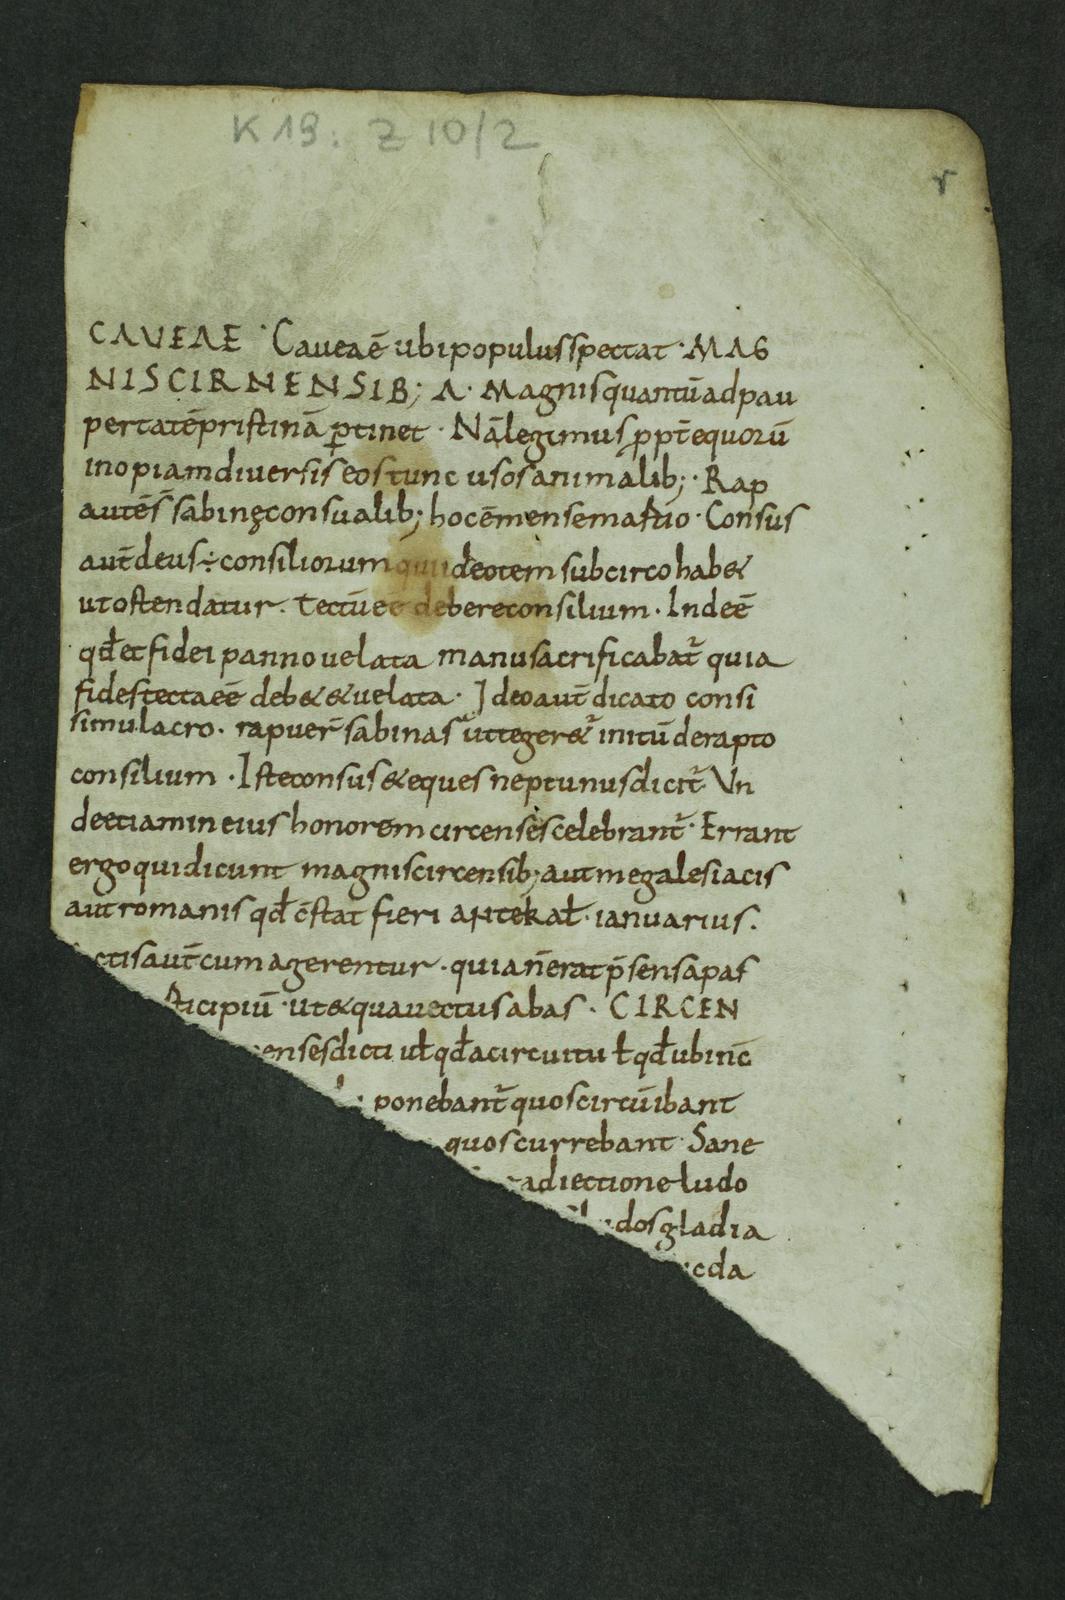 K 19: Z 10/2
r
CAVEAE · Caveaē ubi populus spectat · MAG
NIS CIRNENSIB; A · Magnis quantū ad pau
pertatē pristinā ꝑtinet · Nā legimus ꝓpt̄ equorū
inopiam diversis eos tunc usos animalib; · Rap
autē s̄ sabinę consualib; hoc ē mense martio · Consus
aut̄ deus ÷ consiliorum qui ideo tem sub circo hab&
ut ostendatur · tectū eē debere consilium · Inde ē
qđ et fidei panno velata manu sacrificabat᷑ quia
fides tecta eē deb& & velata · Ideo aut̄ dicato consi
simulacro · rapuer̄ sabinas ut teger&᷑ initū de rapto
consilium · Iste consus & eques neptunus dicit᷑ Vn
de etiam in eius honorem circenses celebrant᷑ · Errant
ergo qui dicunt magnis circensib; aut megalesiacis
aut romanis qđ c̄stat fieri ante kał · ianuarius ·
ctis aut̄ cum agerentur · quia n̄ erat p̄sens a pas
ticipiū · ut & qua vectus abas · CIRCEN
censes dicti uł qđ a circuitu ł qđ ubi nc̄
; ponebant᷑ quos circū ibant
quos currebant · Sane
adiectione ludo
dos gladia
cda